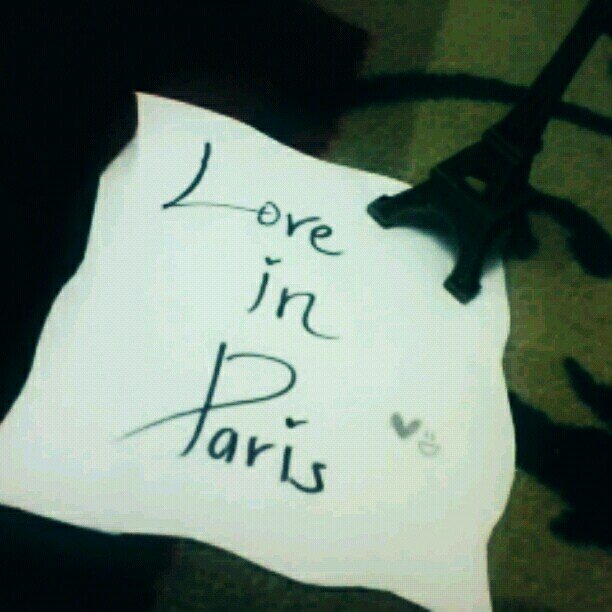 Love
in
Paris